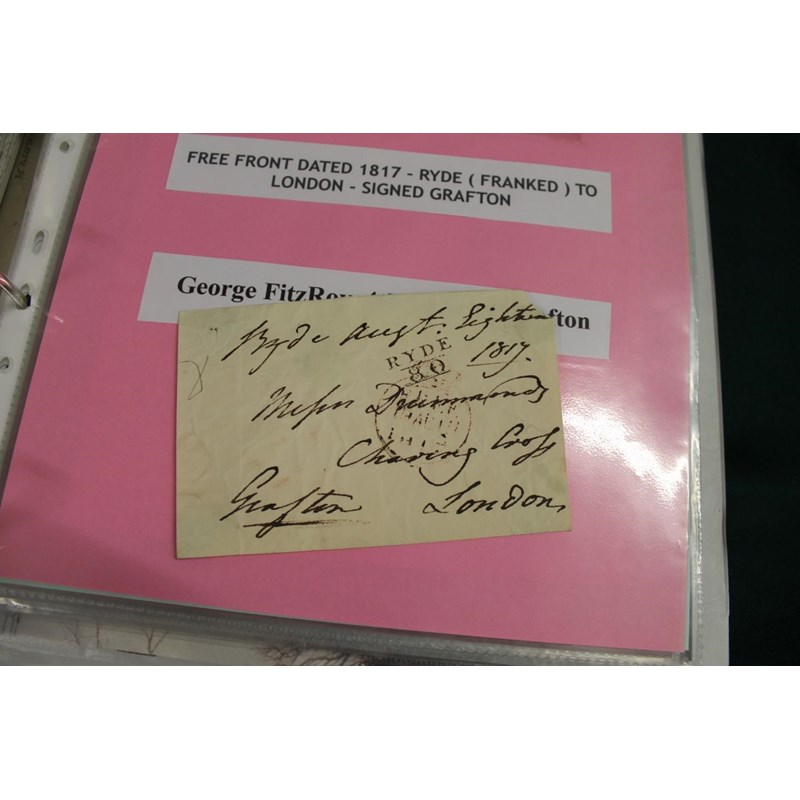 FREE FRONT DATED 1817 - RYDE ( FRANKED ) TO
LONDON - SIGNED GRAFTON
George FitzRoy
fton
Ryde Augt. Eighteen
1817.
RYDE
80
Messrs Drummonds
Charing Cross
Grafton London